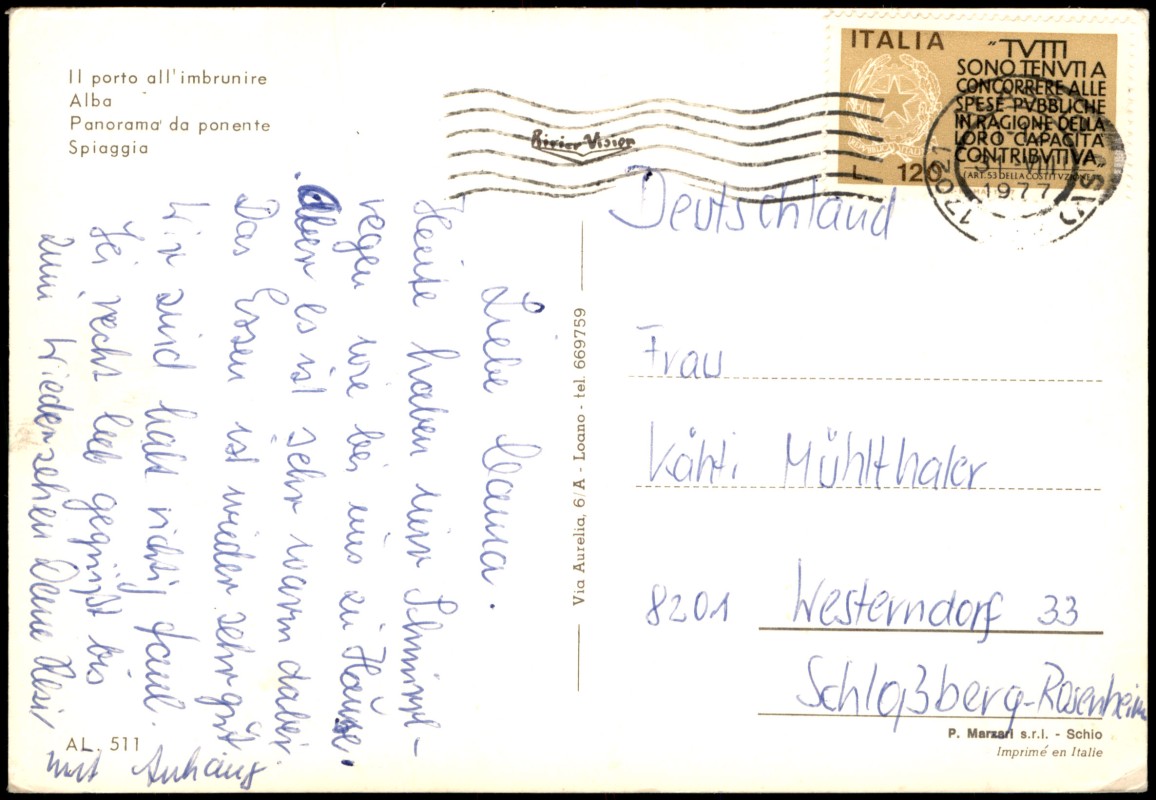 Il porto all'imbrunire
Alba
Panorama da ponente
Spiaggia
ITALIA
"TVTTI
SONO TENVTI A
CONCORRERE ALLE
SPESE PVBBLICHE
IN RAGIONE DELLA
LORO CAPACITÀ
CONTRIBVTIVA"
(ART. 53 DELLA COSTITVZIONE)
L. 120
17021
VIII
1977
Liebe Mama.
Heute haben wir Schnürl-
regen wie bei uns zu Hause.
Aber es ist sehr warm dabei
Das Essen ist wieder sehr gut
Wir sind halt richtig faul.
Sei recht lieb gegrüßt bis
zum Wiedersehen Deine Resi
mit Anhang.
AL. 511
Via Aurelia, 6/A - Loano - tel. 669759
Deutschland
Frau
Käthi Mühlthaler
8201 Westerndorf 33
Schloßberg-Rosenheim
P. Marzari s.r.l. - Schio
Imprimé en Italie